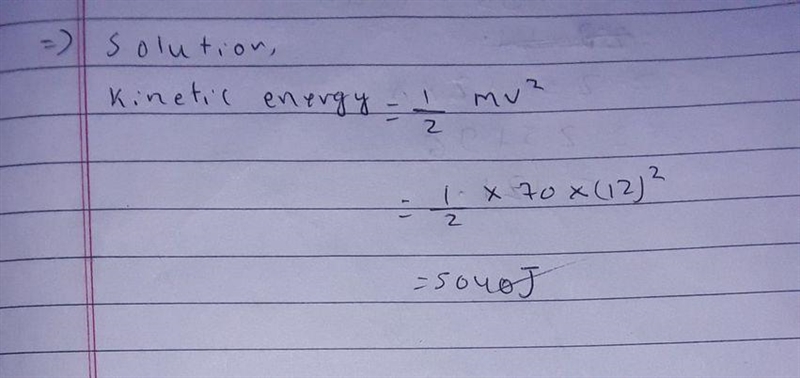 => Solution,
Kinetic energy = 1/2 mv²
= 1/2 × 70 × (12)²
= 5040J